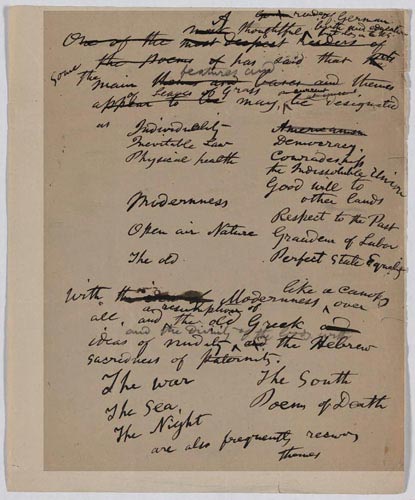 A reader of German
most thoughtful birth and education
One of the most deepest readers of
the poems of has said that the
some features are
the main and themes
of Leaves of Grass a current
appear to be may, be designated
as Individuality Americanism
Inevitable Law Democracy.
Physical health Comradeship
the Indissoluble Union
Good will to
Modernness other lands
Respect to the Past
Open air Nature Grandeur of Labor
The old Perfect State Equality
With the like a canopy
Modernness over
all, and the old Greek and
and the Divinity of the
ideas of nudity and the Hebrew
sacredness of paternity.
The war The South
The Sea, Poems of Death
The Night
are also frequently
themes